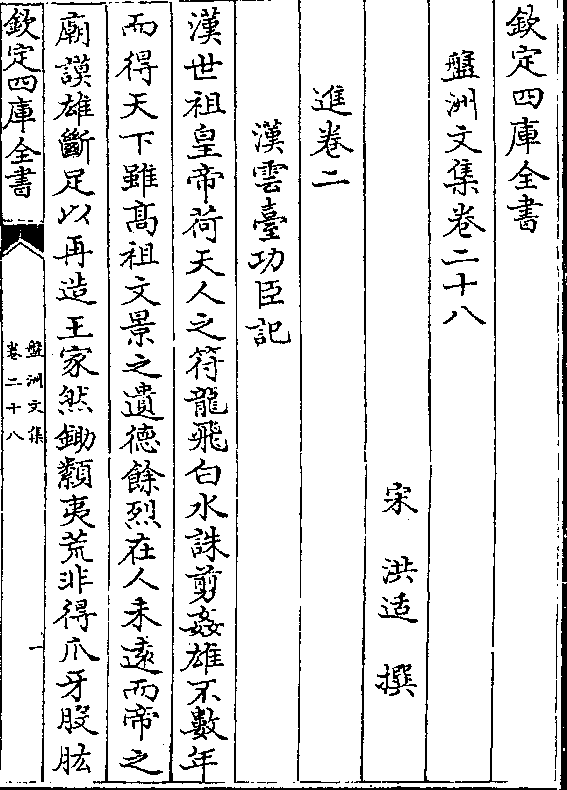 欽定四庫全書
盤洲文集卷二十八
宋 洪适 撰
進卷二
漢雲臺功臣記
漢世祖皇帝荷天人之符龍飛白水誅剪姦雄不數年
而得天下雖高祖文景之遺德餘烈在人未遠而帝之
廟謨雄斷足以再造王家然鋤纇夷荒非得爪牙股肱
欽定四庫全書
盤洲文集
卷二十八
一